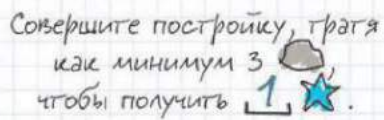 Совершите постройку, тратя
как минимум 3 ,
чтобы получить 1 .